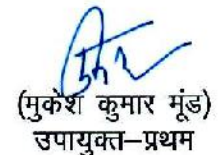 (मुकेश कुमार मूंड)
उपायुक्त–प्रथम